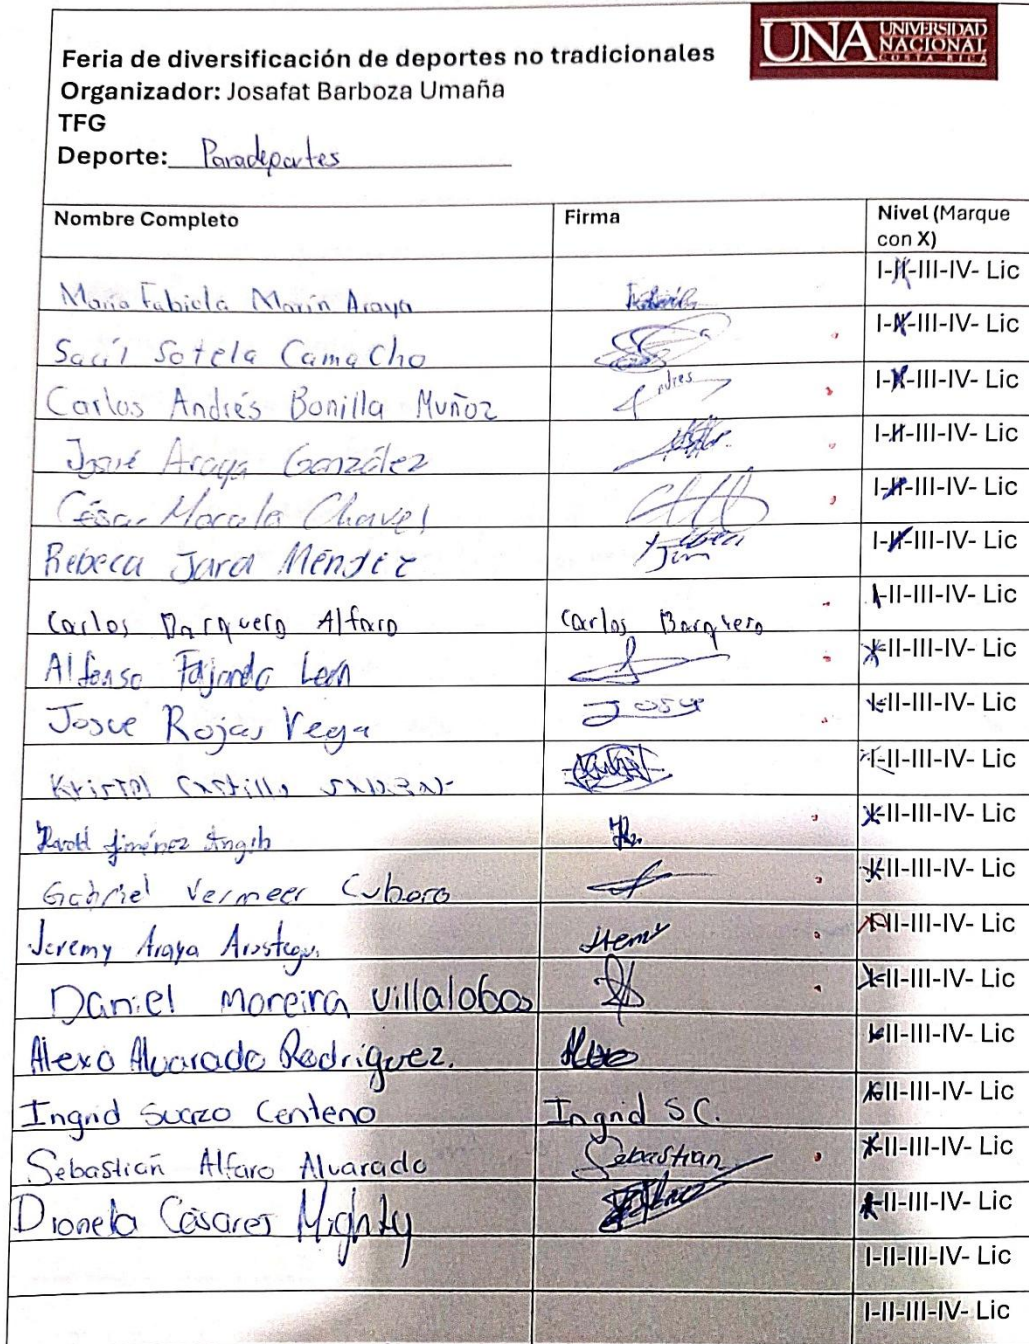 UNA UNIVERSIDAD NACIONAL COSTA RICA
Feria de diversificación de deportes no tradicionales
Organizador: Josafat Barboza Umaña
TFG
Deporte: Paradeportes
Nombre Completo Firma Nivel (Marque con X)
María Fabiola Marín Araya I-II-III-IV- Lic
Saúl Sotela Camacho I-II-III-IV- Lic
Carlos Andrés Bonilla Muñoz Andres I-II-III-IV- Lic
Josué Araya González I-II-III-IV- Lic
César Chaves I-II-III-IV- Lic
Rebeca Jara Méndez I-II-III-IV- Lic
Carlos Barquero Alfaro Carlos Barquero I-II-III-IV- Lic
Alfonso Fajardo León I-II-III-IV- Lic
Josue Rojas Vega Josue I-II-III-IV- Lic
Kristal Castillo I-II-III-IV- Lic
Harold Jiménez I-II-III-IV- Lic
Gabriel Vermeer Cubero I-II-III-IV- Lic
Jeremy Araya I-II-III-IV- Lic
Daniel Moreira Villalobos I-II-III-IV- Lic
Alexa Alvarado Rodríguez. I-II-III-IV- Lic
Ingrid Suazo Centeno Ingrid S.C. I-II-III-IV- Lic
Sebastián Alfaro Alvarado Sebastian I-II-III-IV- Lic
Dionela Cásares Mighty I-II-III-IV- Lic
I-II-III-IV- Lic
I-II-III-IV- Lic